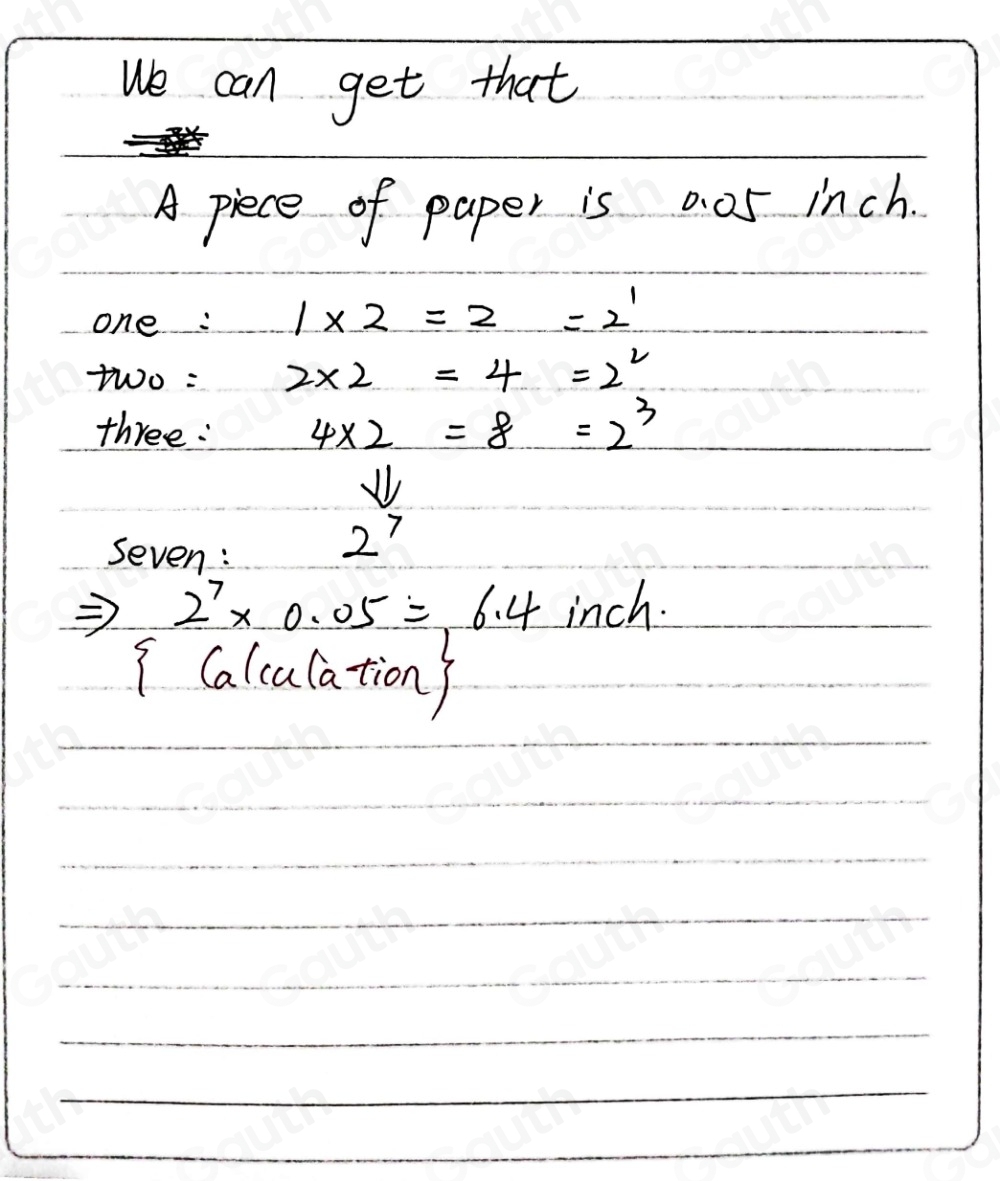 We can get that
A piece of paper is 0.05 inch.
one : 1 × 2 = 2 = 2¹
two : 2×2 = 4 = 2²
three : 4×2 = 8 = 2³
⇓
seven : 2⁷
⇒ 2⁷ × 0.05 = 6.4 inch.
{ Calculation }